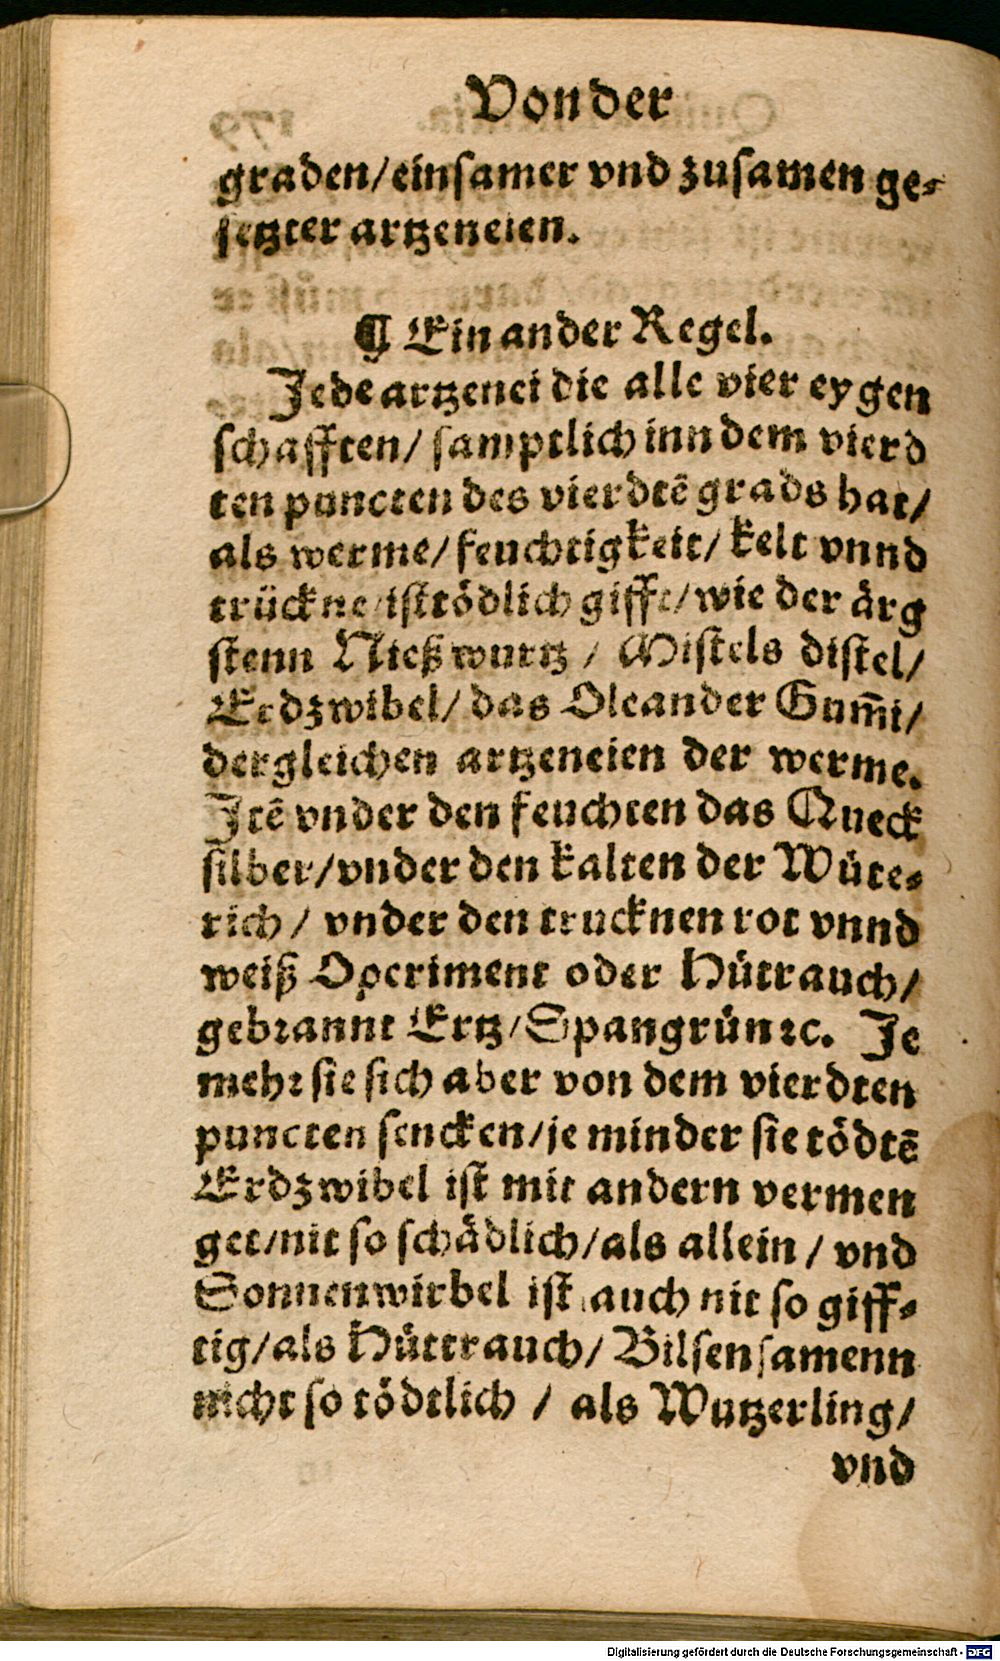 Von der
graden/einsamer vnd zusamen ge⸗
setzter artzeneien.
¶ Ein ander Regel.
Jede artzenei die alle vier eygen
schafften/ samptlich inn dem vierd
ten puncten des vierdtē grads hat/
als werme/ feuchtigkeit/ kelt vnnd
trückne/ist tödlich gifft/wie der ärg
stenn Nießwurtz / Mistels distel/
Erdzwibel/ das Oleander Gum̄i/
dergleichen artzeneien der werme.
Jtē vnder den feuchten das Queck
silber/vnder den kalten der Wüte⸗
rich / vnder den trucknen rot vnnd
weiß Operiment oder Hütrauch/
gebꝛannt Ertz/Spangrün ꝛc. Je
mehꝛ sie sich aber von dem vierdten
puncten sencken/je minder sie tödtē
Erdzwibel ist mit andern vermen
get/nit so schädlich/als allein / vnd
Sonnenwirbel ist auch nit so giff⸗
tig/als Hüttrauch/ Bilsensamenn
nicht so tödtlich / als Wutzerling/
vnd
Digitalisierung gefördert durch die Deutsche Forschungsgemeinschaft - DFG